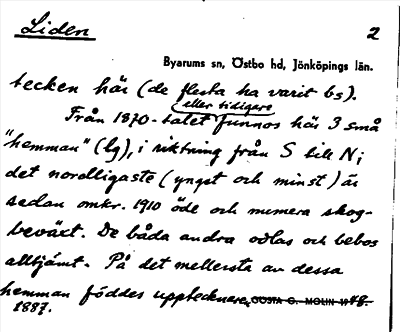 Liden 2
Byarums sn, Östbo hd, Jönköpings län.
tecken här (de flesta ha varit bs).
eller tidigare
Från 1870-talet funnos här 3 små
"hemman" (lg), i riktning från S till N;
det nordligaste (yngst och minst) är
sedan omkr. 1910 öde och numera skog-
beväxt. De båda andra odlas och bebos
alltjämt. På det mellersta av dessa
hemman föddes upptecknaren, GÖSTA G. MOLIN 1948.
1887.